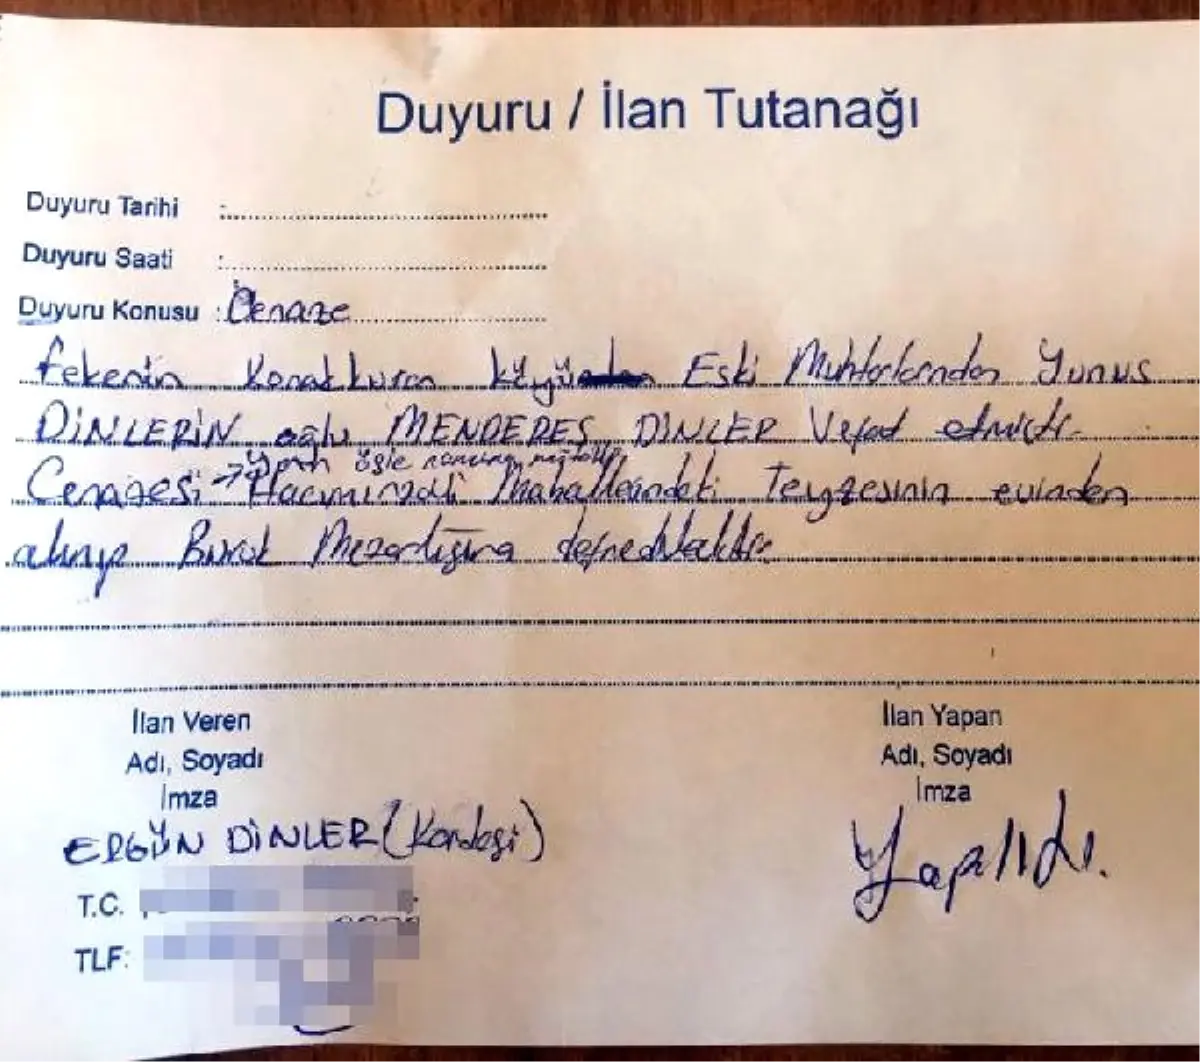 Duyuru / İlan Tutanağı
Duyuru Tarihi :
Duyuru Saati :
Duyuru Konusu : Cenaze
fekenin Konakkuran köyü Eski Muhtarlarından Yunus
DİNLERİN oğlu MENDERES DİNLER Vefat etmiştir.
yarın öğle namazına
Cenazesi → Hacımirzali Mahallesindeki Teyzesinin evinden
alınıp Buruk Mezarlığına defnedilecektir.
İlan Veren
Adı, Soyadı
İmza
İlan Yapan
Adı, Soyadı
İmza
ERGÜN DİNLER (Kardeşi)
Yapıldı.
T.C.
TLF: